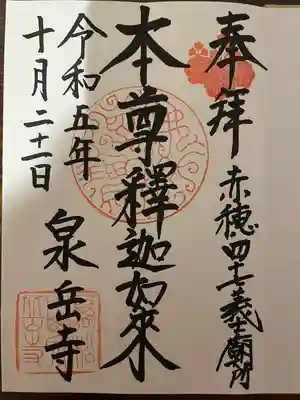 奉拝 赤穂四十七義士廟所
本尊釋迦如來
令和五年
十月二十一日
泉岳寺